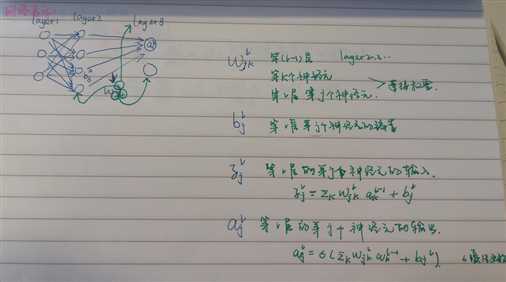 layer1 layer2 layer3
w^l_jk 第(l-1)层 layer2.3...
第k个神经元
第l层第j个神经元 > 连接权重
b^l_j 第l层第j个神经元的偏置
z^l_j 第l层的第j个神经元的输入.
z^l_j = Σ_k w^l_jk a^l-1_k + b^l_j
a^l_j 第l层的第j个神经元的输出.
a^l_j = σ(Σ_k w^l_jk a^l-1_k + b^l_j)